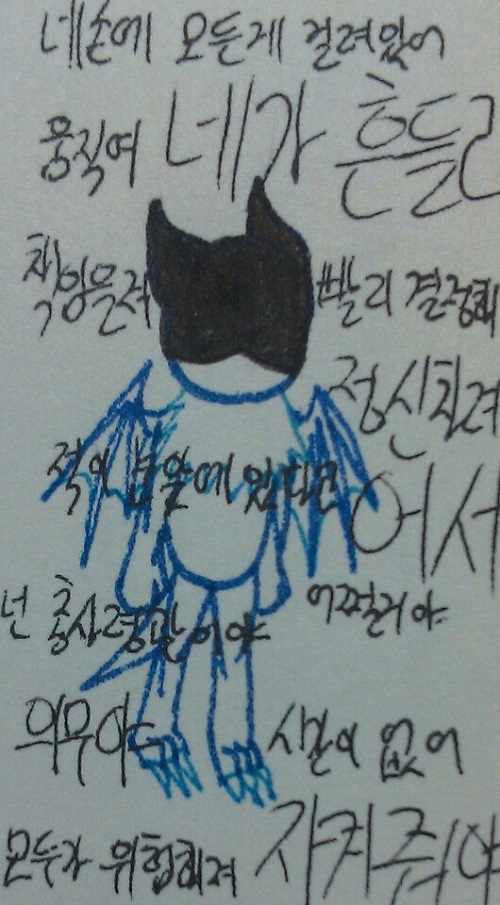 네손에 모든게 걸려있어
움직여 네가 흔들리
책임을져 빨리 결정해
정신차려
적이 눈앞에 있다면
어서
넌 총사령관이야 어쩔거야
의무야 시간이 없어
모두가 위험해져 지켜줘야